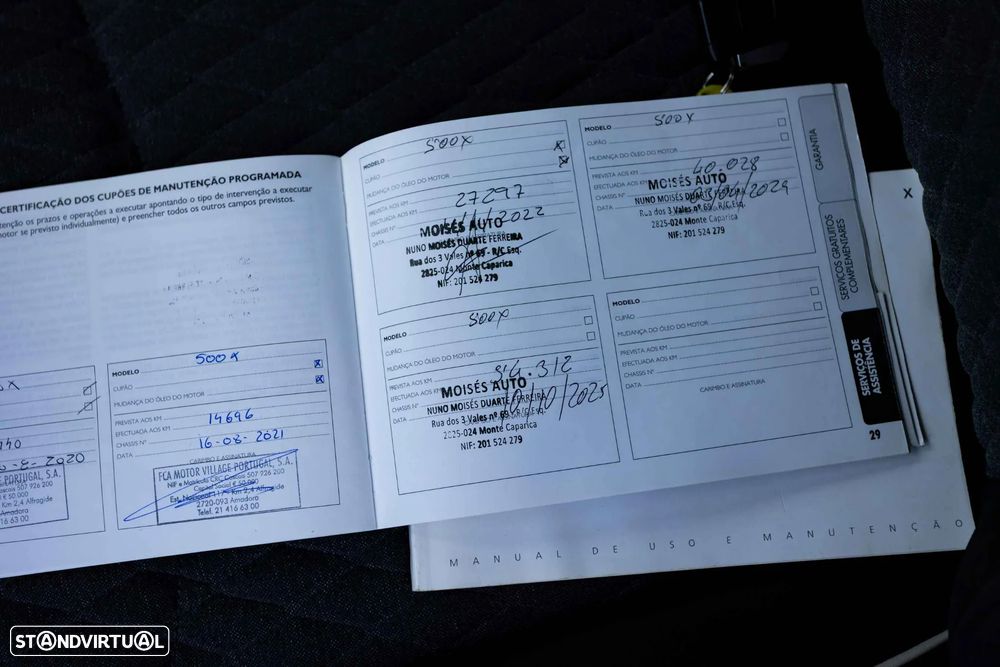 CERTIFICAÇÃO DOS CUPÕES DE MANUTENÇÃO PROGRAMADA
os prazos e operações a executar apontando o tipo de intervenção a executar
se previsto individualmente) e preencher todos os outros campos previstos.
X
2020
PORTUGAL, S.A.
507 926 200
€ 50.000
Km 2,4 Alfragide
Amadora
416 63 00
MODELO 500X
CUPÃO
MUDANÇA DO ÓLEO DO MOTOR
PREVISTA AOS KM
EFECTUADA AOS KM 14696
CHASSIS Nº
DATA 16-08-2021
CARIMBO E ASSINATURA
FCA MOTOR VILLAGE PORTUGAL, S.A.
NIF e Matrícula CRC Cascais 507 926 200
Capital Social € 50.000
Est. Nacional 117 - Km 2,4 Alfragide
2720-093 Amadora
Telef. 21 416 63 00
MODELO 500X
CUPÃO
MUDANÇA DO ÓLEO DO MOTOR
PREVISTA AOS KM
EFECTUADA AOS KM 27297
CHASSIS Nº
DATA 2022
MOISÉS AUTO
NUNO MOISÉS DUARTE FERREIRA
Rua dos 3 Vales nº 69 - R/C Esq.
2825-024 Monte Caparica
NIF: 201 524 279
MODELO 500X
CUPÃO
MUDANÇA DO ÓLEO DO MOTOR
PREVISTA AOS KM
EFECTUADA AOS KM 40.028
CHASSIS Nº
DATA
MOISÉS AUTO
NUNO MOISÉS DUARTE FERREIRA
Rua dos 3 Vales nº 69, R/C Esq.
2825-024 Monte Caparica
NIF: 201 524 279
MODELO 500X
CUPÃO
MUDANÇA DO ÓLEO DO MOTOR
PREVISTA AOS KM
EFECTUADA AOS KM
CHASSIS Nº
DATA 2025
MOISÉS AUTO
NUNO MOISÉS DUARTE FERREIRA
Rua dos 3 Vales nº 69, R/C Esq.
2825-024 Monte Caparica
NIF: 201 524 279
MODELO
CUPÃO
MUDANÇA DO ÓLEO DO MOTOR
PREVISTA AOS KM
EFECTUADA AOS KM
CHASSIS Nº
DATA
CARIMBO E ASSINATURA
GARANTIA
SERVIÇOS GRATUITOS
COMPLEMENTARES
SERVIÇOS DE
ASSISTÊNCIA
29
X
MANUAL DE USO E MANUTENÇÃO
STANDVIRTUAL